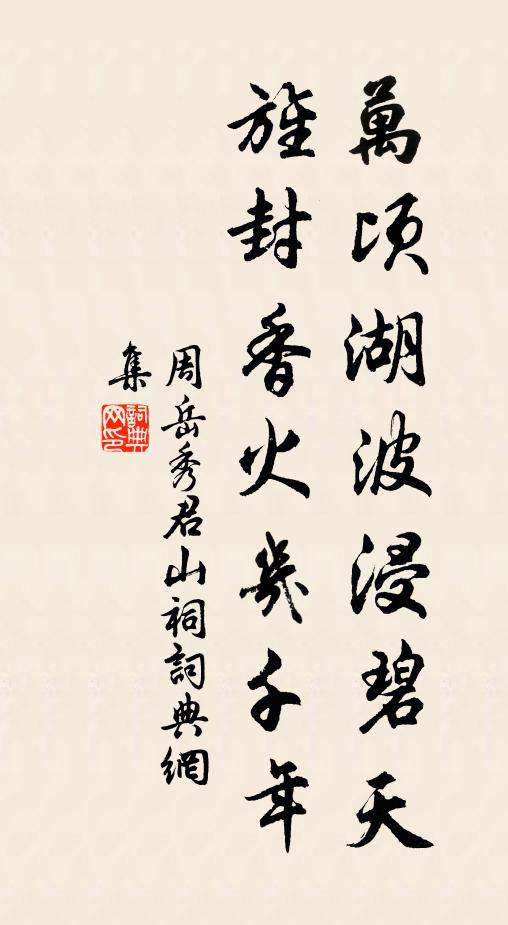 萬頃湖波浸碧天
旌封香火幾千年
周岳秀君山祠詞典網
集
詞典
网印